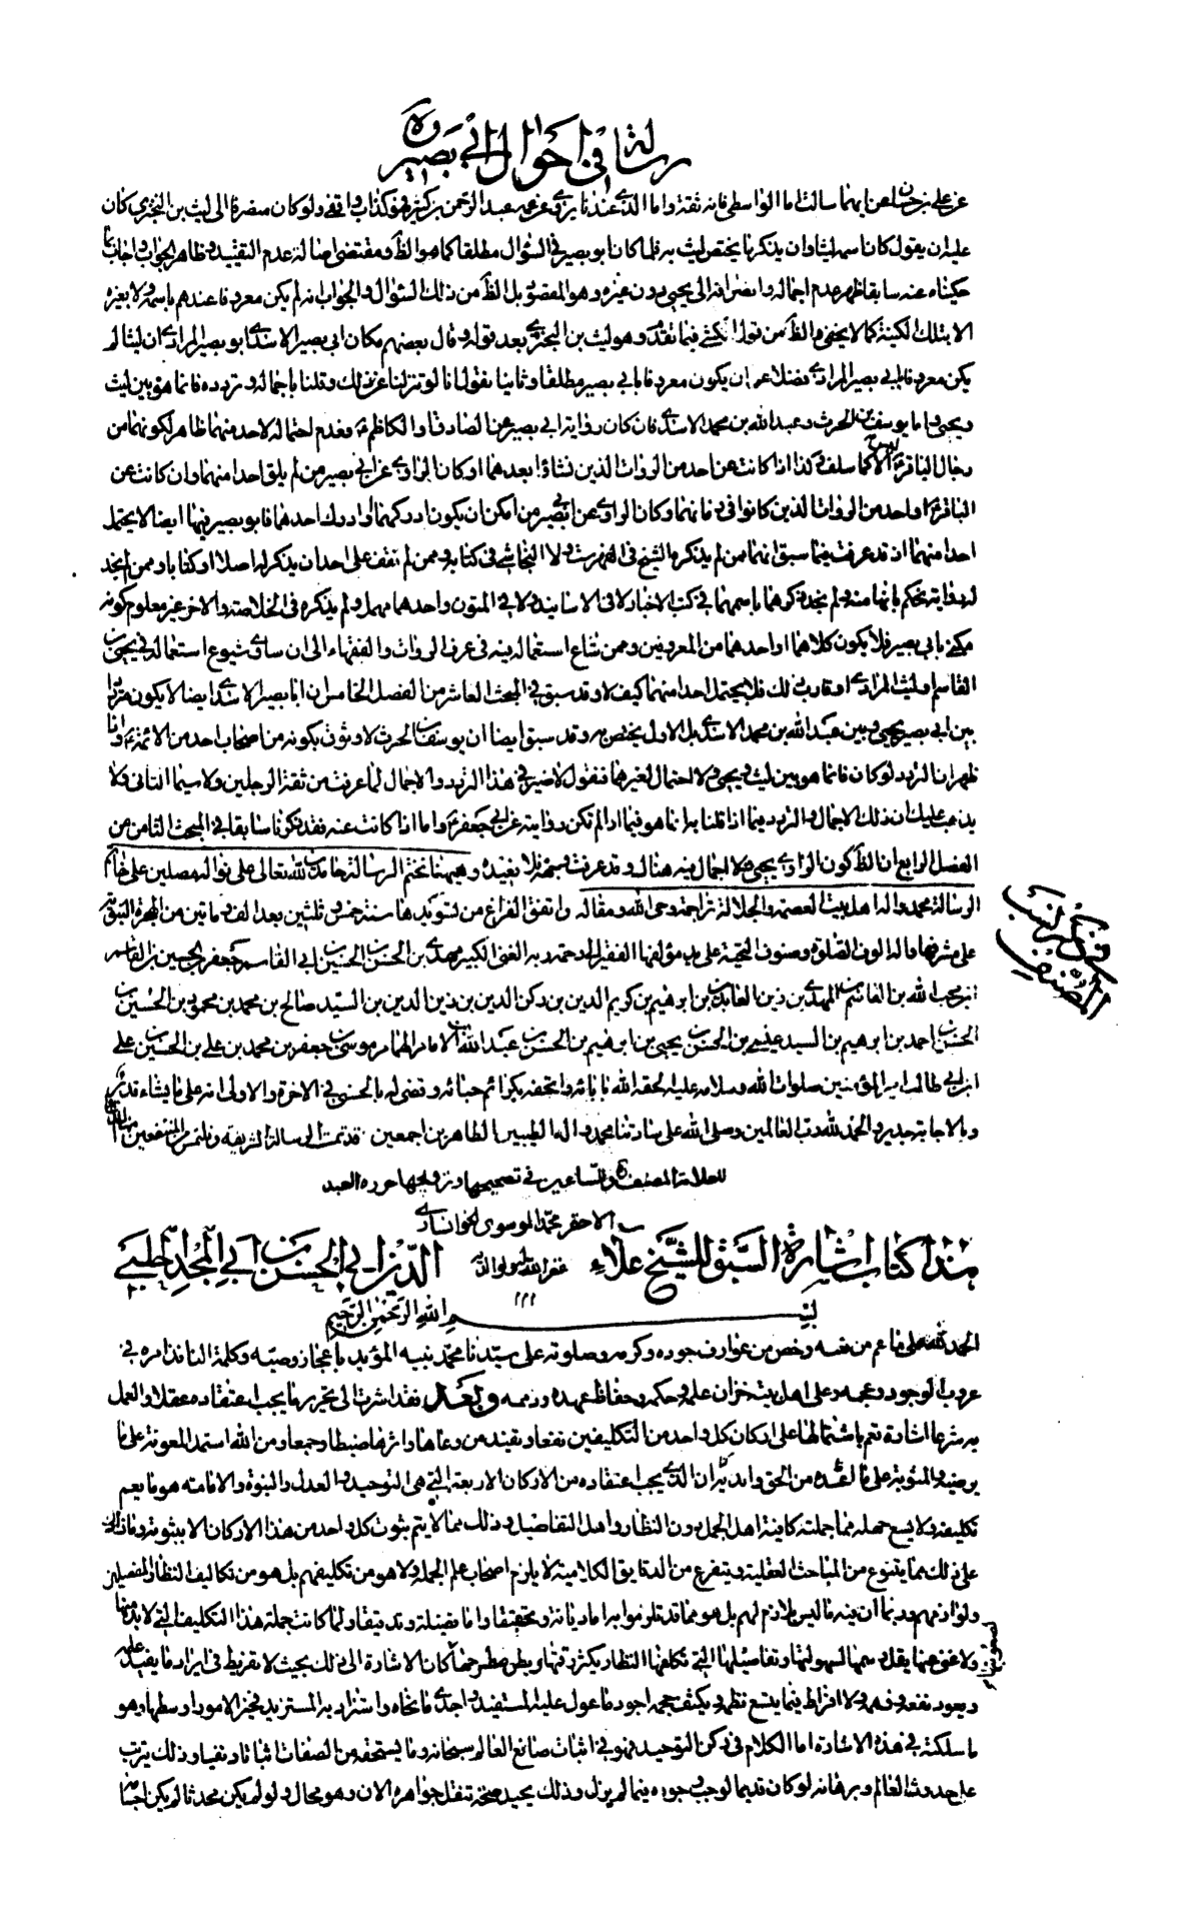 رسالة في احوال ابي بصير
عن علي بن حسان عن ايهما سالت اما الواسطي فانه ثقة واما الذي عندنا يروي عن عمه عبد الرحمن بن كثير فهو كذاب واقفي ولو كان منصرفا الى ليث بن البختري كان
عليه ان يقول كان اسمه ليثا وان يذكر ما يختص ليث به فلما كان ابو بصير في السؤال مطلقا كما هو الظ ومقتضى اصالة عدم التقييد وظاهر الجواب واجاب بما
حكيناه عنه سابقا ظهر عدم اجماله وانصرافه الى يحيى دون غيره وهو المقصود بل الظ من ذلك السؤال والجواب انه لم يكن معروفا عندهم باسمه ولا بغيره
الا بتلك الكنية كما لا يخفى والظ من قول الكشي فيما تقدم وهو ليث بن البختري بعد قوله وقال بعضهم مكان ابي بصير الاسدي ابو بصير المرادي ان ليثا لم
يكن معروفا بابي بصير المرادي فضلا عن ان يكون معروفا بابي بصير مطلقا وثانيا نقول انا لو تنزلنا عن ذلك وقلنا باجماله وتردده فانما هو بين ليث
ويحيى واما يوسف بن الحرث وعبد الله بن محمد الاسدي فان كان رواية ابي بصير عن الصادق او الكاظم ع فعدم احتماله لاحد منهما ظاهر لكونهما من
رجال الباقر ع ليس الا كما سلف وكذا اذا كانت عن احد من الروات الذين نشاؤا بعدهما او كان الراوي عن ابي بصير من لم يلق احدا منهما وان كانت عن
الباقر ع او احد من الروات الذين كانوا في زمانهما وكان الراوي عن ابي بصير من امكن ان يكون ادركهما او ادرك احدهما فابو بصير فيها ايضا لا يحتمل
احدا منهما اذ قد عرفت فيما سبق انهما ممن لم يذكره الشيخ في الفهرست ولا النجاشي في كتابه وممن لم نقف على احد ان يذكر له اصلا او كتابا وممن لم نجد
له رواية نحكم بانها منه ولم نجد ذكرهما باسمهما في كتب الاخبار لا في الاسانيد ولا في المتون واحدهما مهمل ولم يذكره في الخلاصة والاخر غير معلوم كونه
مكنى بابي بصير فلا يكون كلاهما او احدهما من المعروفين وممن شاع استعماله فيه في عرف الروات والفقهاء الى ان ساوى شيوع استعماله في يحيى بن
القاسم او ليث المرادي او قارب ذلك فلا يحتمل احدا منهما كيف لا وقد سبق في المبحث العاشر من الفصل الخامس ان ابا بصير الاسدي ايضا لا يكون مترددا
بين ابي بصير يحيى وبين عبد الله بن محمد الاسدي بل الاول يختص به وقد سبق ايضا ان يوسف بن الحرث لا وثوق بكونه من اصحاب احد من الائمة ع واذا
ظهر ان التردد لو كان فانما هو بين ليث ويحيى ولا احتمال لغيرهما فنقول لا ضير في هذا التردد والاجمال لما عرفت من ثقة الرجلين ولا سيما الثاني ولا
يذهب عليك ان ذلك الاجمال والتردد فيما اذا قلنا به انما هو فيما اذا لم تكن رواية عن ابي جعفر ع واما اذا كانت عنه فقد ذكرنا سابقا في المبحث الثامن من
الفصل الرابع ان الظ كون الراوي يحيى ولا اجمال فيه هناك وقد عرفت وجهه فلا نعيده وههنا نختم الرسالة حامدين لله تعالى على نواله مصلين على خاتم
الرسالة محمد واله اهل بيت العصمة والجلالة تراجمة وحي الله ومقاله واتفق الفراغ من تسويدها سنة خمس وثلثين بعد الف ومائتين من الهجرة النبوية
على مشرفها واله الوف الصلوة وصنوف التحية على يد مؤلفها الفقير الى رحمة ربه الغني الكبير مهدي بن الحسن الحسين بن ابي القاسم جعفر بن الحسين بن القاسم
ابن محب الله بن القاسم بن المهدي بن زين العابدين بن ابرهيم بن كريم الدين بن ركن الدين بن زين الدين بن السيد صالح بن محمد بن محمود بن الحسين بن
الحسن بن احمد بن ابرهيم بن السيد عيسى بن الحسن بن يحيى بن ابرهيم بن الحسن بن عبد الله بن الامام الهمام موسى بن جعفر بن محمد بن علي بن الحسين بن علي
ابن ابي طالب امير المؤمنين صلوات الله وسلامه عليه الحقه الله بابائه واتحفه بكرائم حبائه وقضى له بالحسنى في الاخرة والاولى انه على ما يشاء قدير
وبالاجابة جدير والحمد لله رب العالمين وصلى الله على سادتنا محمد واله الطيبين الطاهرين اجمعين قد تمت الرسالة الشريفة ونلتمس من المنتفعين منها الدعاء
للعلامة المصنف وللساعين في تصحيحها وترويجها حرره العبد
الاحقر محمد الموسوي الخوانساري
غفر الله له ولوالديه
في تذكر نسب المصنف ره
هذا كتاب اشارة السبق للشيخ علاء الدين ابي الحسن بن ابي المجد الحلبي
بسم الله الرحمن الرحيم
الحمد لله على ما عم من نعمه وخص من عوارف جوده وكرمه وصلوته على سيدنا محمد نبيه المؤيد باعجاز وصيه وكلمة النافذ امره في
عرب الوجود وعجمه وعلى اهل بيته خزان علمه وحكمه وحفاظ عهده وذممه وبعد فقد اشرت الى تحرير ما يجب اعتقاده عقلا والعمل
به شرعا اشارة تعم باشتمالها على اركان كل واحد من التكليفين نفعا وتفيد من وعاها واثرها ضبطا وجمعا ومن الله استمد المعونة على ما
يرضيه والمثوبة على ما من الحق وابديه ان الذي يجب اعتقاده من الاركان الاربعة التي هي التوحيد والعدل والنبوة والامامة هو ما يعم
تكليفه ولا يسع جهله مما جملته كافية اهل الجمل دون النظار واهل التفاصيل وذلك مما لا يتم ثبوت كل واحد من هذا الاركان الا بثبوته وما زاد
على ذلك مما يتنوع من المباحث العقلية ويتفرع من الدقايق الكلامية لا يلزم اصحاب علم الجملة ولا هو من تكليفهم بل هو من تكاليف النظار المفصلين
ولوازمهم وربما ان فيه ما ليس بلازم لهم بل هو مما قد تلزموا به اما ديانة وتحقيقا واما فضيلة وتدقيقا ولما كانت جملة هذا التكليف التي لا بد منها
ولا غنى عنها يقل رسمها لسهولتها وتفاصيلها التي تكلفها النظار يكثر رقمها ويطول شرحها كان الاشارة الى ذلك بحيث لا تفريط في ايراد ما يفيد علمه
ويعود نفعه وفهمه ولا افراط فيما يتسع نظمه ويكثف حجمه اجود ما عول عليه المستفيد واجدى ما نحاه واسترا به المستزيد فخير الامور اوسطها وهو
ما سلكته في هذه الاشارة اما الكلام في ركن التوحيد فهو في اثبات صانع العالم سبحانه وما يستحقه من الصفات اثباتا ونفيا وذلك يترتب
على حدوث العالم وبرهانه لو كان قديما لوجب وجوده فيما لم يزل وذلك يحيل صحة تنقل جواهره الان وهو محال ولو لم يكن محدثا لم يكن